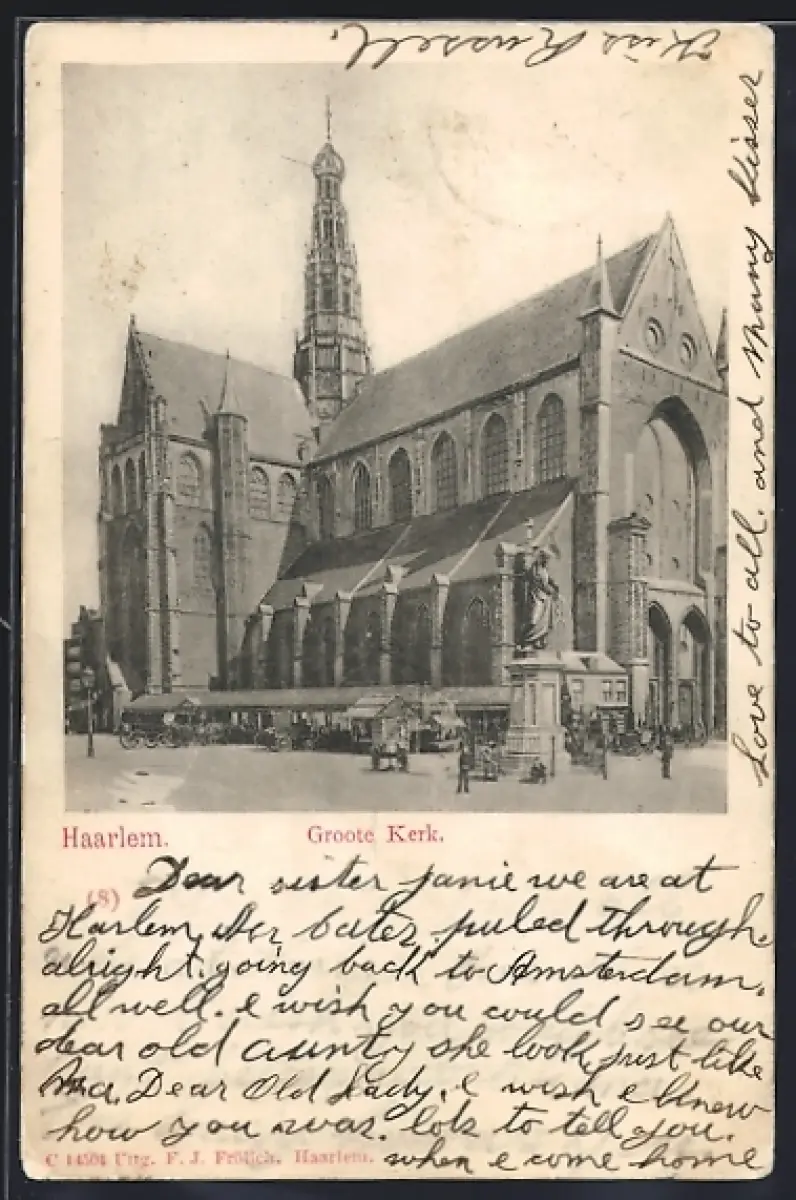 Haarlem.
Groote Kerk.
(8)
Dear sister Janie we are at
Harlem, puled through.
alright. going back to Amsterdam.
all well. I wish you could see our
dear old aunty she look just like
Ma, Dear Old Lady, I wish I knew
how you was. lots to tell you.
when I come home
C 14504 Uitg. F. J. Frölich. Haarlem.
Love to all. and Many Kisser
Kiss Russell.